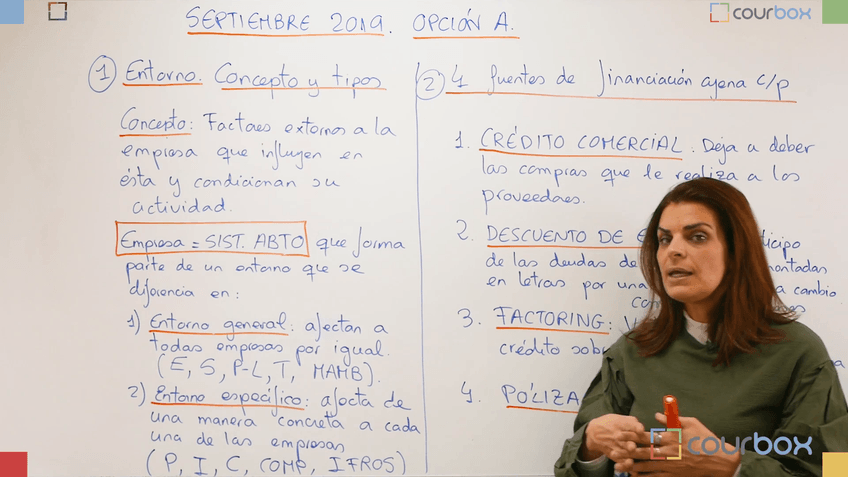 SEPTIEMBRE 2019. OPCIÓN A.
courbox
1 Entorno. Concepto y tipos
Concepto: Factores externos a la
empresa que influyen en
ésta y condicionan su
actividad.
Empresa = SIST. ABTO que forma
parte de un entorno que se
diferencia en:
1) Entorno general: afectan a
todas empresas por igual.
(E, S, P-L, T, MAMB).
2) Entorno específico: afecta de
una manera concreta a cada
una de las empresas
(P, I, C, COMP, IFROS)
2 4 fuentes de financiación ajena c/p
1. CRÉDITO COMERCIAL. Deja a deber
las compras que le realiza a los
proveedores.
2. DESCUENTO DE
de las deudas de
en letras por una a cambio
3. FACTORING:
crédito
4. PÓLIZA
courbox